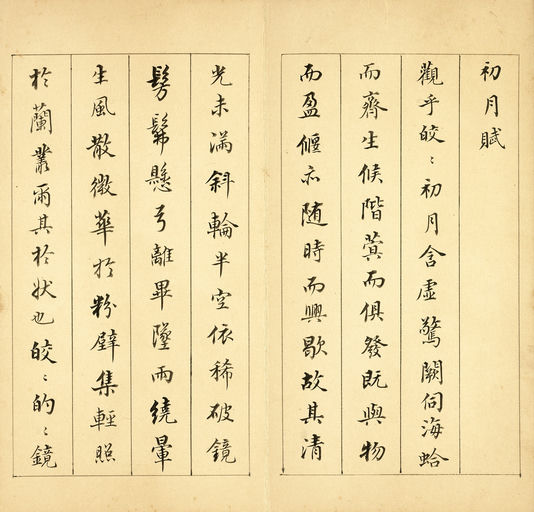 初月賦
觀乎皎〻初月含虛驚闕伺海蛤
而齊生候階蓂而俱發既與物
而盈偃亦随時而興歇故其清
光未滿斜輪半空依稀破鏡
髣髴懸弓離畢墜雨繞暈
生風散微華於粉壁集輕照
於蘭叢爾其於狀也皎〻的〻鏡